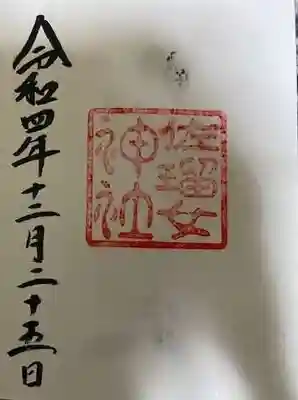 佐瑠女
神社
令和四年十二月二十五日